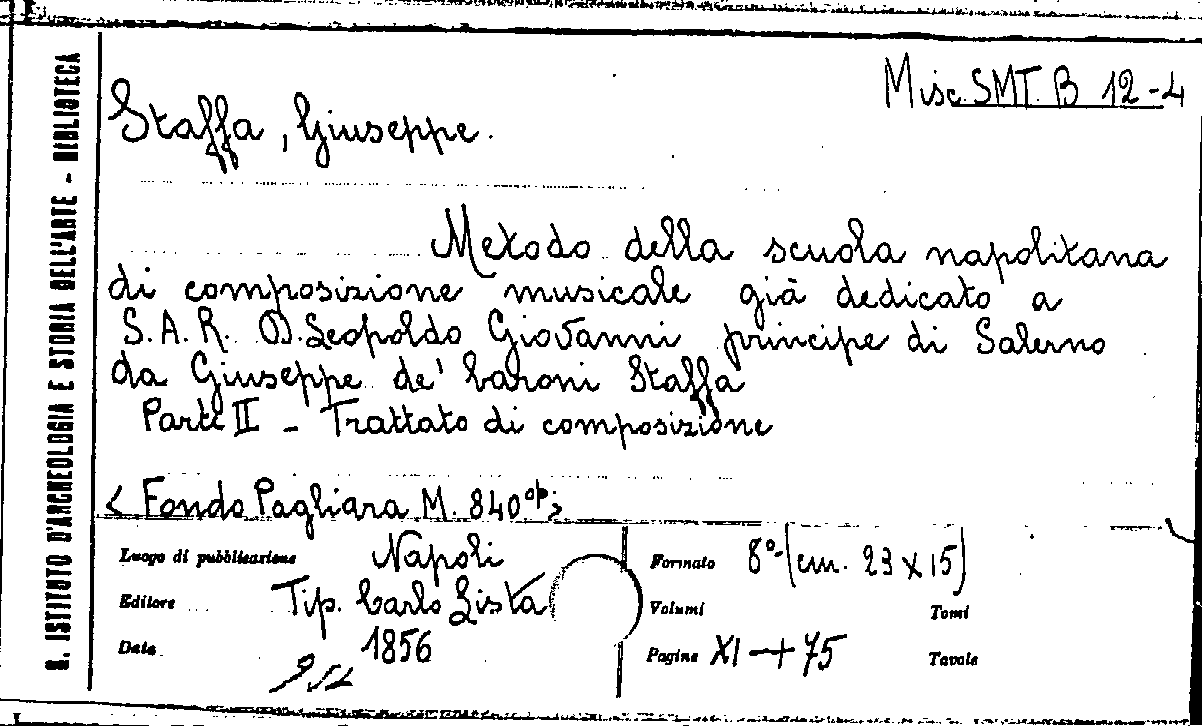 R. ISTITUTO D'ARCHEOLOGIA E STORIA DELL'ARTE - BIBLIOTECA
Misc. SMT. B 12-4
Staffa, Giuseppe.
Metodo della scuola napolitana
di composizione musicale già dedicato a
S.A.R. D. Leopoldo Giovanni principe di Salerno
da Giuseppe de' baroni Staffa
Parte II - Trattato di composizione
< Fondo Pagliara M. 840 >
Luogo di pubblicazione Napoli
Editore Tip. Carlo Lista
Data 1856
Formato 8°-(cm. 23 x 15)
Volumi Tomi
Pagine XI-+75 Tavole